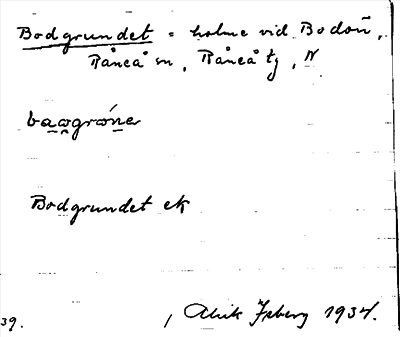 Bodgrundet = holme vid Bodön,
Råneå sn, Råneå tg, N
Bodgrundet ek
39.
Alrik Ysberg 1934.